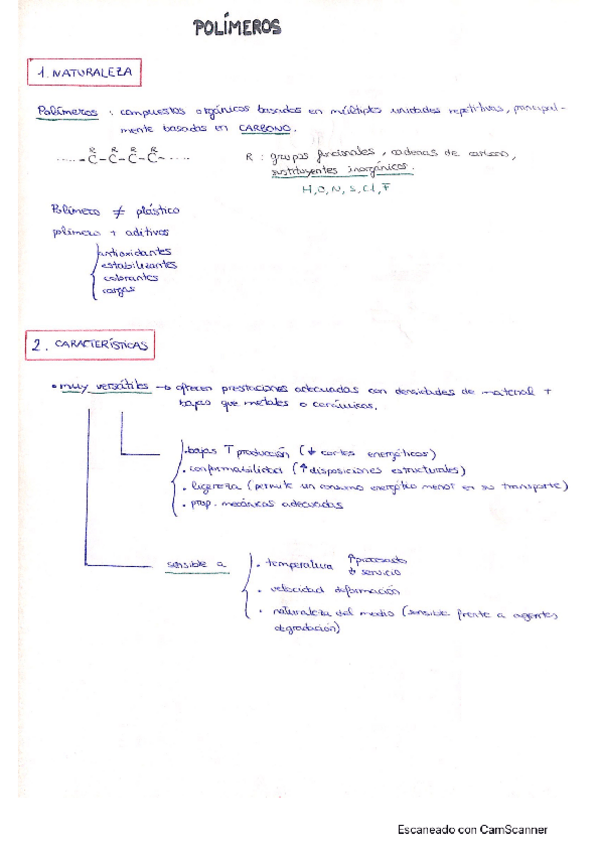 POLÍMEROS
1. NATURALEZA
Polímeros : compuestos orgánicos basados en múltiples unidades repetitivas, principal-
mente basadas en CARBONO.
R R R R
.....-C-C-C-C-.....
R : grupos funcionales, cadenas de carbono,
sustituyentes inorgánicos.
H, O, N, S, Cl, F
Polímero ≠ plástico
polímero + aditivos
antioxidantes
estabilizantes
colorantes
cargas
2. CARACTERÍSTICAS
• muy versátiles → ofrecen prestaciones adecuadas con densidades de material +
bajas que metales o cerámicos.
. bajas T producción (↓ costes energéticos)
. conformabilidad (↑ disposiciones estructurales)
. ligereza (permite un consumo energético menor en su transporte)
. prop. mecánicas adecuadas
sensible a
. temperatura ↑ procesado
↓ servicio
. velocidad deformación
. naturaleza del medio (sensible frente a agentes
degradación)
Escaneado con CamScanner